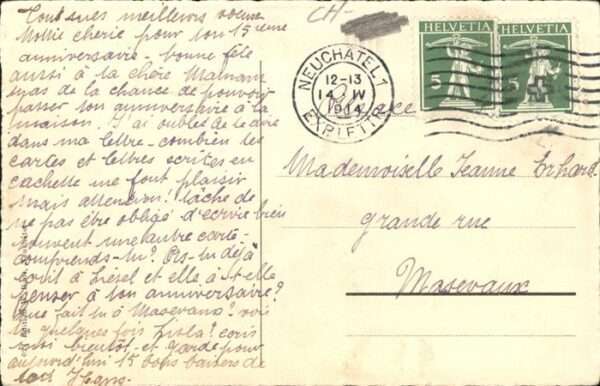 Tout mes meilleurs voeux
Mollie chérie pour ton 15ième
anniversaire - bonne fête
aussi à la chère Maman
de la chance de pouvoir
passer ton anniversaire à la
maison. J'ai oublié de te dire
dans ma lettre - combien les
cartes et lettres écrites en
cachette me font plaisir
Mais attention! tâche de
ne pas être obligé d'écrire bien
souvent une autre carte -
comprends-tu? As-tu déjà
écrit à Liesel et elle a-t-elle
penser à ton anniversaire?
Que fait tu à Masevaux? vois
tu quelques fois Lisla? écris
bientôt - et garde pour
aujourd'hui 15 bons baisers de
Hans.
CH-
HELVETIA
5
HELVETIA
5
NEUCHÂTEL 1
12-13
14 IV
1914
EXP. LETTR.
Mademoiselle Jeanne Erhard
grande rue
Masevaux